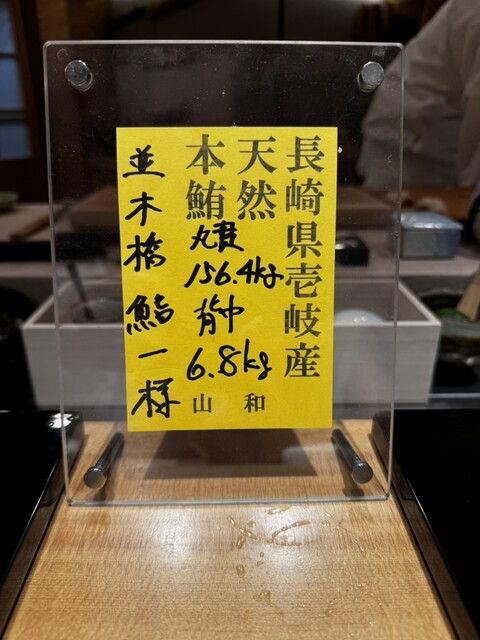 長崎県壱岐産
天然
本鮪
156.4kg
背中
6.8kg
山和
並木橋 鮨一様